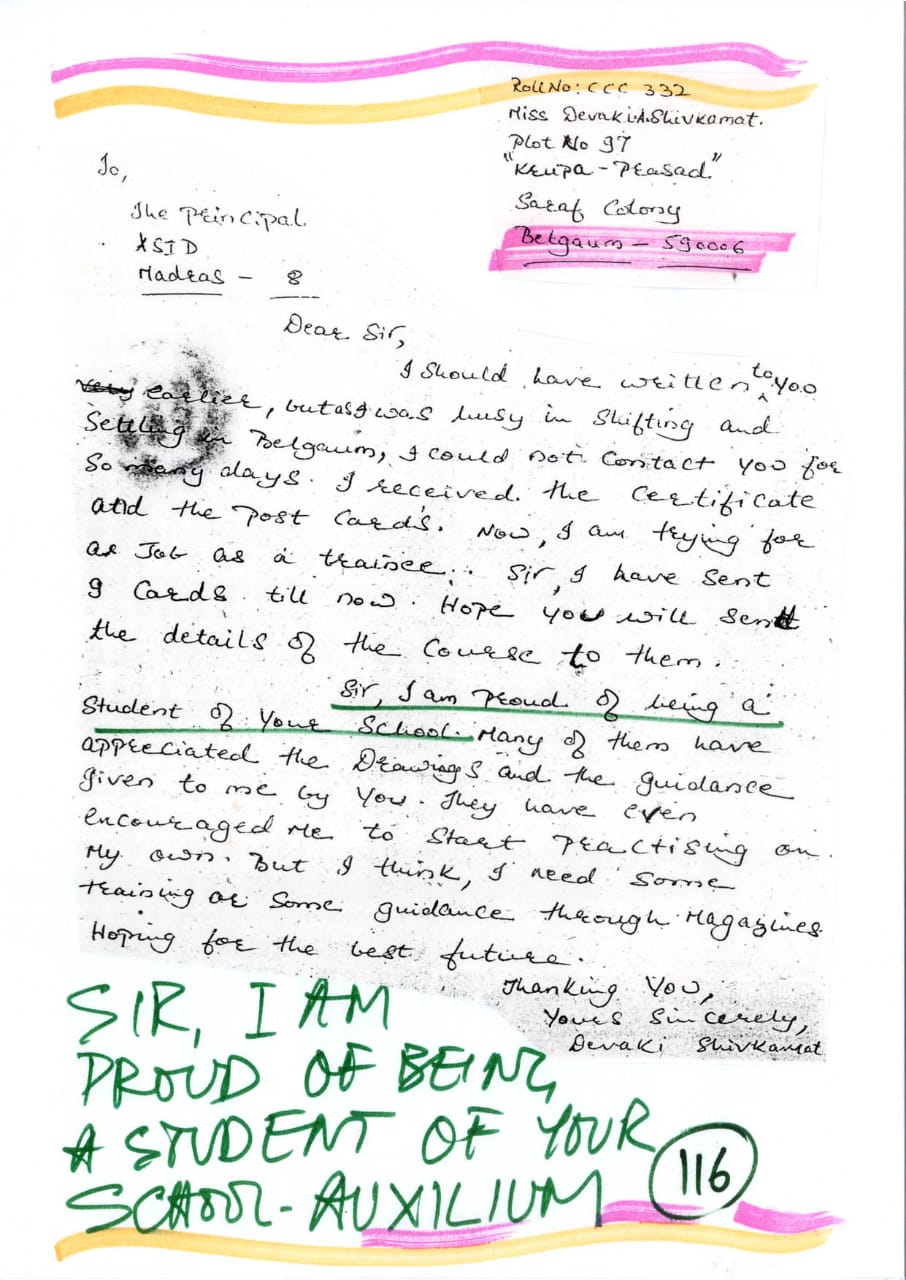 Roll No: CCC 332
Miss Devaki.A.Shivkamat.
Plot No 97
"Krupa - Prasad"
Saraf Colony
Belgaum - 590006
To,
The Principal
XSID
Madras - 8
Dear Sir,
I should have written to you
very earlier, but as I was busy in shifting and
settling in Belgaum, I could not contact you for
so many days. I received the certificate
and the post cards. Now, I am trying for
a Job as a trainee. Sir, I have sent
9 cards till now. Hope you will send
the details of the course to them.
Sir, I am proud of being a
student of your school. Many of them have
appreciated the Drawings and the guidance
given to me by you. They have even
encouraged me to start practising on
my own. But I think, I need some
training or some guidance through Magazines
Hoping for the best future.
Thanking You,
Yours sincerely,
Devaki Shivkamat
SIR, I AM
PROUD OF BEING
A STUDENT OF YOUR
SCHOOL-AUXILIUM
116